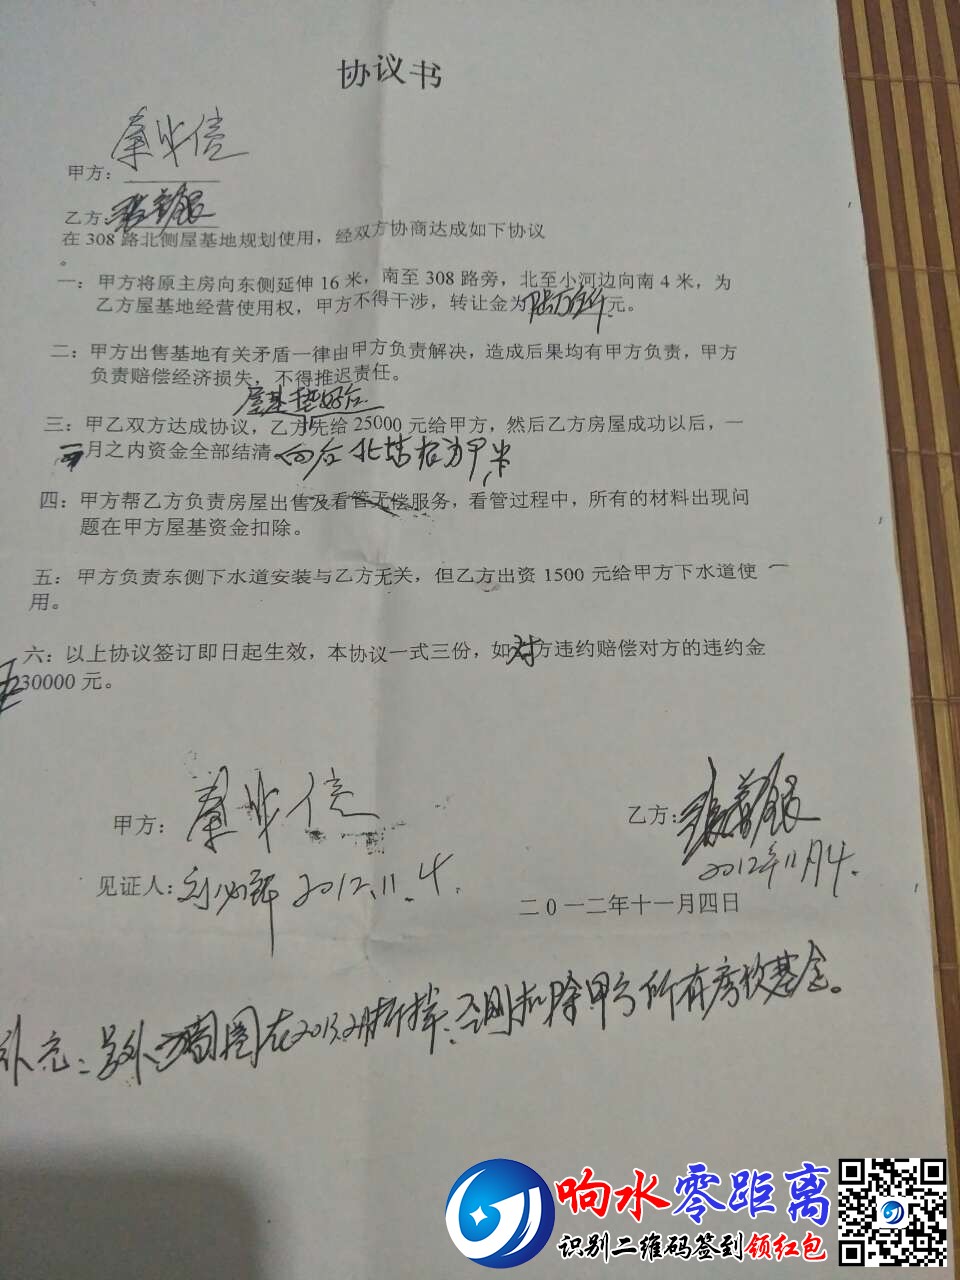 协议书
甲方：
乙方：
在 308 路北侧屋基地规划使用，经双方协商达成如下协议
。
一：甲方将原主房向东侧延伸 16 米，南至 308 路旁，北至小河边向南 4 米，为
乙方屋基地经营使用权，甲方不得干涉，转让金为陆万元。
二：甲方出售基地有关矛盾一律由甲方负责解决，造成后果均有甲方负责，甲方
负责赔偿经济损失，不得推迟责任。
屋基垫好后
三：甲乙双方达成协议，乙方先给 25000 元给甲方，然后乙方房屋成功以后，一
月之内资金全部结清
四：甲方帮乙方负责房屋出售及看管无偿服务，看管过程中，所有的材料出现问
题在甲方屋基资金扣除。
五：甲方负责东侧下水道安装与乙方无关，但乙方出资 1500 元给甲方下水道使
用。
六：以上协议签订即日起生效，本协议一式三份，如对方违约赔偿对方的违约金
30000 元。
甲方：
乙方：
2012年11月4.
见证人： 2012.11.4.
二０一二年十一月四日
补充：另外 在2013.2月 扣除甲方所有 基金。
响水零距离
识别二维码签到领红包